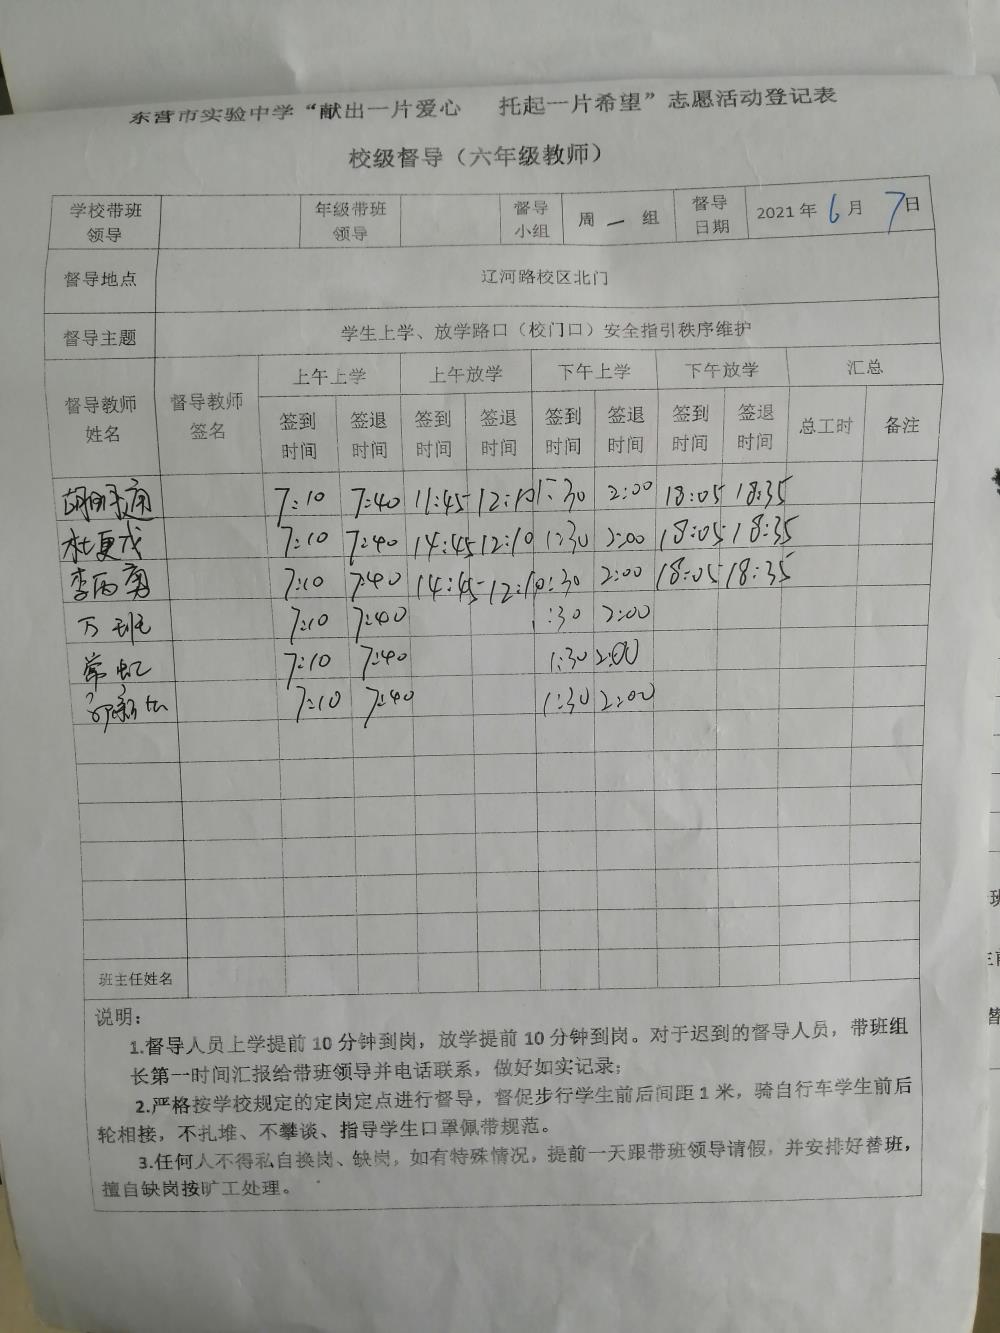 东营市实验中学“献出一片爱心 托起一片希望”志愿活动登记表
校级督导（六年级教师）
学校带班领导 年级带班领导 督导小组 周一组 督导日期 2021年6月7日
督导地点 辽河路校区北门
督导主题 学生上学、放学路口（校门口）安全指引秩序维护
督导教师姓名 督导教师签名 上午上学 上午放学 下午上学 下午放学 汇总
签到时间 签退时间 签到时间 签退时间 签到时间 签退时间 签到时间 签退时间 总工时 备注
7:10 7:40 11:45 12:10 1:30 2:00 18:05 18:35
杜夏戊 7:10 7:40 14:45 12:10 1:30 2:00 18:05 18:35
李丙勇 7:10 7:40 14:45 12:10 1:30 2:00 18:05 18:35
万 7:10 7:40 1:30 2:00
常虹 7:10 7:40 1:30 2:00
7:10 7:40 1:30 2:00
班主任姓名
说明：
1.督导人员上学提前10分钟到岗，放学提前10分钟到岗。对于迟到的督导人员，带班组
长第一时间汇报给带班领导并电话联系，做好如实记录；
2.严格按学校规定的定岗定点进行督导，督促步行学生前后间距1米，骑自行车学生前后
轮相接，不扎堆、不攀谈、指导学生口罩佩带规范。
3.任何人不得私自换岗、缺岗，如有特殊情况，提前一天跟带班领导请假，并安排好替班，
擅自缺岗按旷工处理。